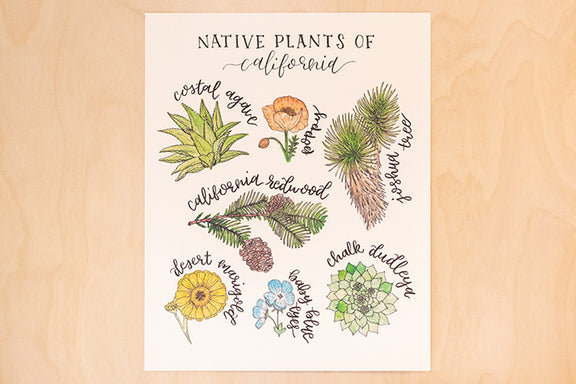 NATIVE PLANTS OF
california
costal agave
poppy
joshua tree
california redwood
desert marigold
baby blue
eyes
chalk dudleya